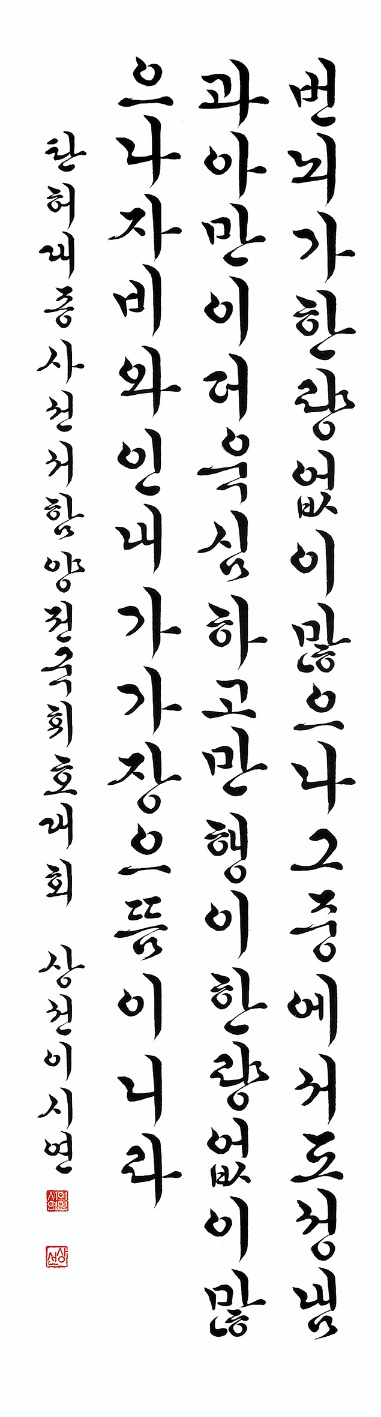 번뇌가한량없이많으나그중에서도성냄
과아만이더욱심하고만행이한량없이많
으나자비와인내가가장으뜸이니라
탄허대종사선서함양전국휘호대회 상선이시연
상선